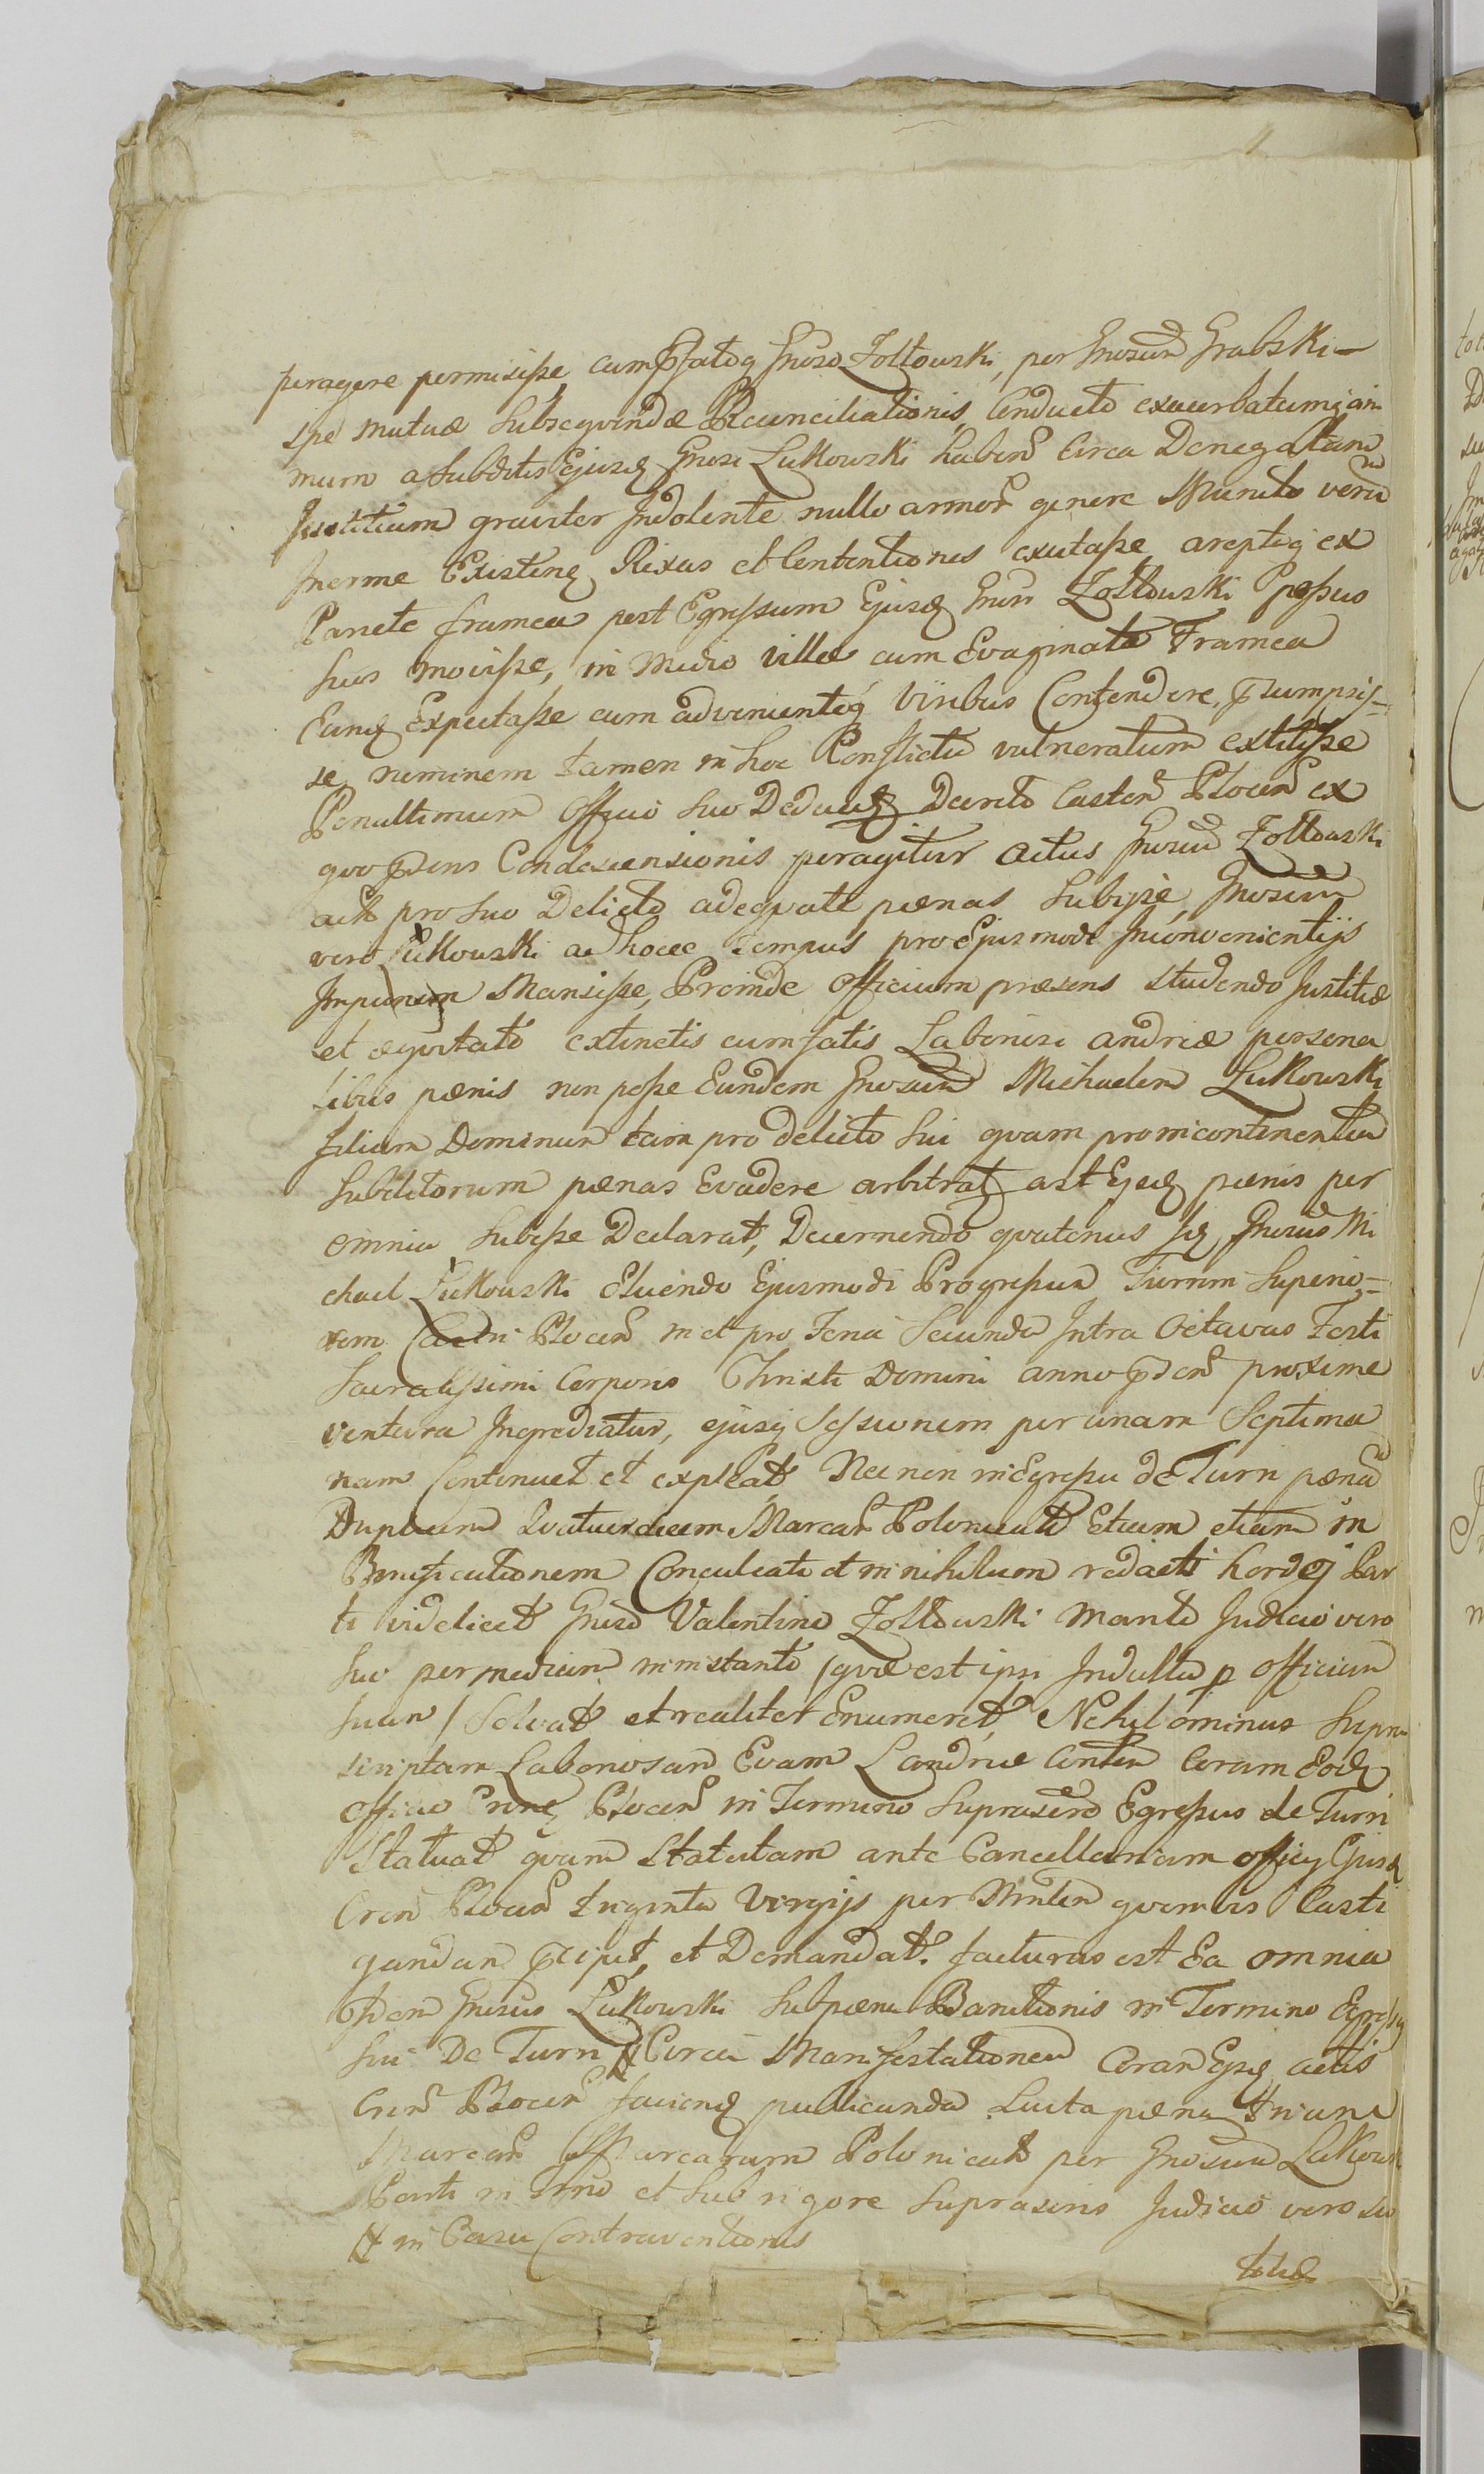 peragere permisisse, cum pfatoq Gnoso Zołtowski, per Gnosum Grabski
spe mutuæ subseqvendæ Reconciliationis, Conducto exacerbatumq ani
mum a subditis Ejusq Gnosi Lukowski haben Circa Denegatam
Justitium graviter Indolente nullo armor genere Munito veru
Inerme Existenq Rixas et Contentiones excitasse areptaq ex
Pariete framea post Egressum Ejusq Gnosi Zołtowski Passus
suos movisse, in Medio villæ cum Evaginata Framea
Eumq Expectasse cum advenienteq Viribus Contendere, psumpsis-
se neminem tamen in hoc Conflictu vulneratum extitisse
Penultimum Officio suo Deducq Decreto Castren Plocen ex
quo psens Condescensionis peragitur Actus Gnosum Zołtowski
pro suo Delicto adeqvate pænas subijsse, Gnosum
vero Lukowski ad hocce tempus pro Ejusmodi Inconvenientijs
Impunem Mansisse, Proinde Officium præsens studendo Justitiæ
et æqvitati extinctis cum fatis Laboriosi andriæ persona
libus pænis non posse Eundem Gnosum Michaelem Lukowski
filium Dominum tam pro delicto sui qvam pro incontinentia
Subditorum pænas Evadere arbitrat ast Ejsq pænis per
omnia subesse Declarat, Decernendo qvatenus Gnosus Mi
chael Lukowski Eluendo Ejusmodi Progressum Turrim superio-
rem Castri Plocen in et pro Feria Secunda Intra Octavas Festi
Sacratissimi Corporis Christi Domini anno psen proxime
ventura Ingrediatur, ejusq Sessionem per unam Septima
nam Continuet et expleat, Nec non in Egressu de Turri pænam
Duplum Qvatuordecem Marcar Polonicali Etiam etiam in
Bonificationem Conculcati et in nihilum redacti hordej Par
ti videlicet Gnoso Valentino Zołtowski Manto Judicio vero
suo per mediam in instanti / qvæ est ipsi Indulta p Officium
suum / Solvat et realiter Enumeret, Nihilominus Supra
scriptam Laboriosam Evam Landrice Conten Coram Eodq
Officio Crine Plocen in Termino Suprascro Egressus de Turri
Statuat qvam Statutam ante Cancellariam officij Ejusd
Crin Plocen triginta Virgijs per Mintm qvemvis Casti
gandam pcipit, et Demandat. facturus est Ea omnia
Idem Gnosus Lukowski sub pæna Banitionis in Termino Egressus
sui De Turri # Circa Manifestationem Coram Ejsq actis
Crin Plocen facienq publicanda Lucta pæna trium
Marcar Marcarum Polonicali per Gnosum Lukows
Parti in Trno et sub rigore suprascris Judicio vero suo
# in Casu Contraventionis